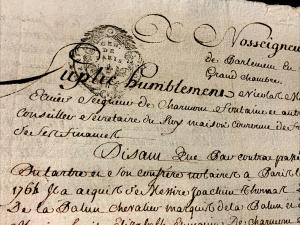 A Nosseigneu
de Parlement en
Grand chambre
GEN
DE PARIS
Suplie humblement Nicolas M
Ecuier Seigneur de Charmon Fontaine et autr
Conseiller Secretaire du Roy maison couronne de
Ses Finances
Disant Que Par contrat passé
Dutartre et son confrere notaires à Paris l
1761 Il a acquis de Messire Joachim Thomas
De la Balun Chevalier marquis de la Balun et
Elizabeth de Charmon